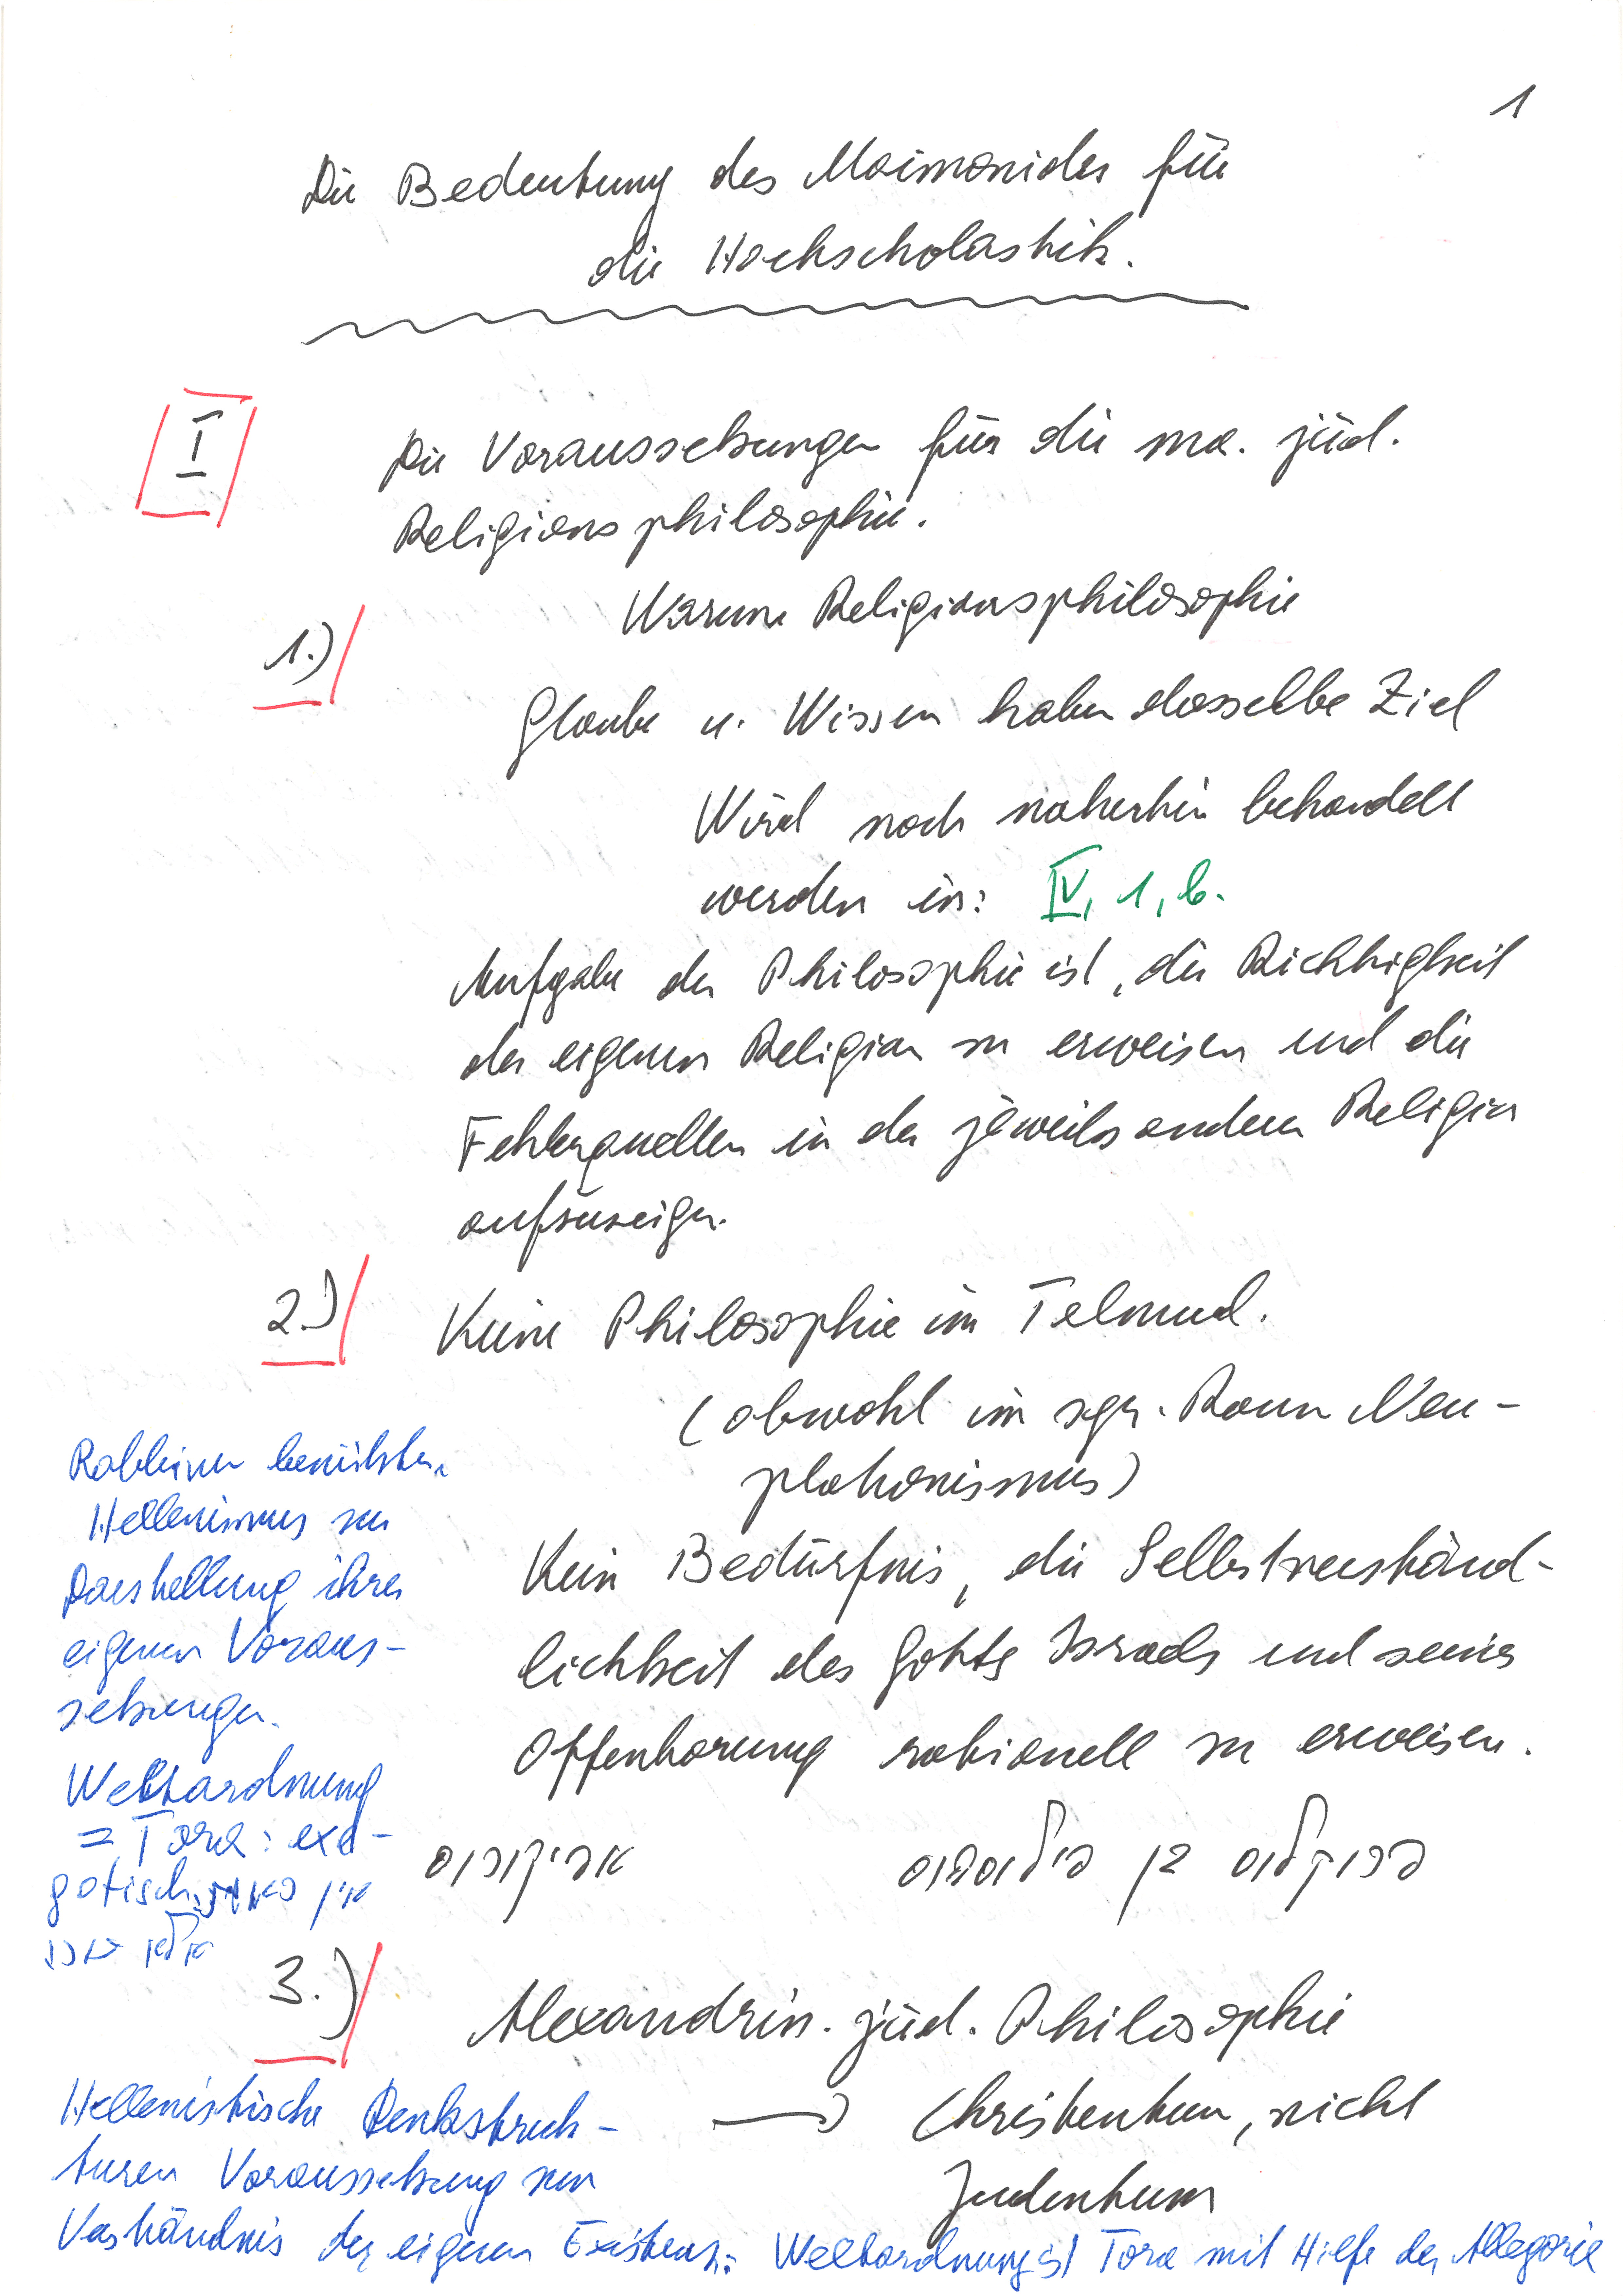 1
Die Bedeutung des Maimonides für
die Hochscholastik.
I
Die Voraussetzungen für die ma. jüd.
Religionsphilosophie.
Warum Religionsphilosophie
1.)
Glaube u. Wissen haben dasselbe Ziel
Wird noch näherhin behandelt
werden in: IV, 1, b.
Aufgabe der Philosophie ist, die Richtigkeit
der eigenen Religion zu erweisen und die
Fehlerquellen in der jeweils anderen Religion
aufzuzeigen.
2.)
Keine Philosophie im Talmud.
(obwohl im Raum Neu-
platonismus)
Kein Bedürfnis, die Selbstverständ-
lichkeit des Gottes Israels und seiner
Offenbarung rationell zu erweisen.
אפיקורוס
אבנימוס בן פילוסופוס
Rabbinen benützten
Hellenismus zur
Darstellung ihrer
eigenen Voraus-
setzungen.
Weltordnung
= Tora: exe-
getisch אין
אלא
3.)
Alexandrin. jüd. Philosophie
→ Christentum, nicht
Judentum
Hellenistische Denkstruk-
turen Voraussetzung zum
Verständnis der eigenen Existenz: Weltordnung ist Tora mit Hilfe der Allegorie